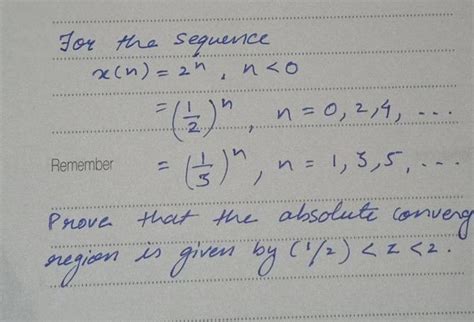 For the sequence
x(n) = 2^n, n < 0
= (1/2)^n, n = 0, 2, 4, ...
Remember = (1/3)^n, n = 1, 3, 5, ...
Prove that the absolute converg
region is given by (1/2) < z < 2.